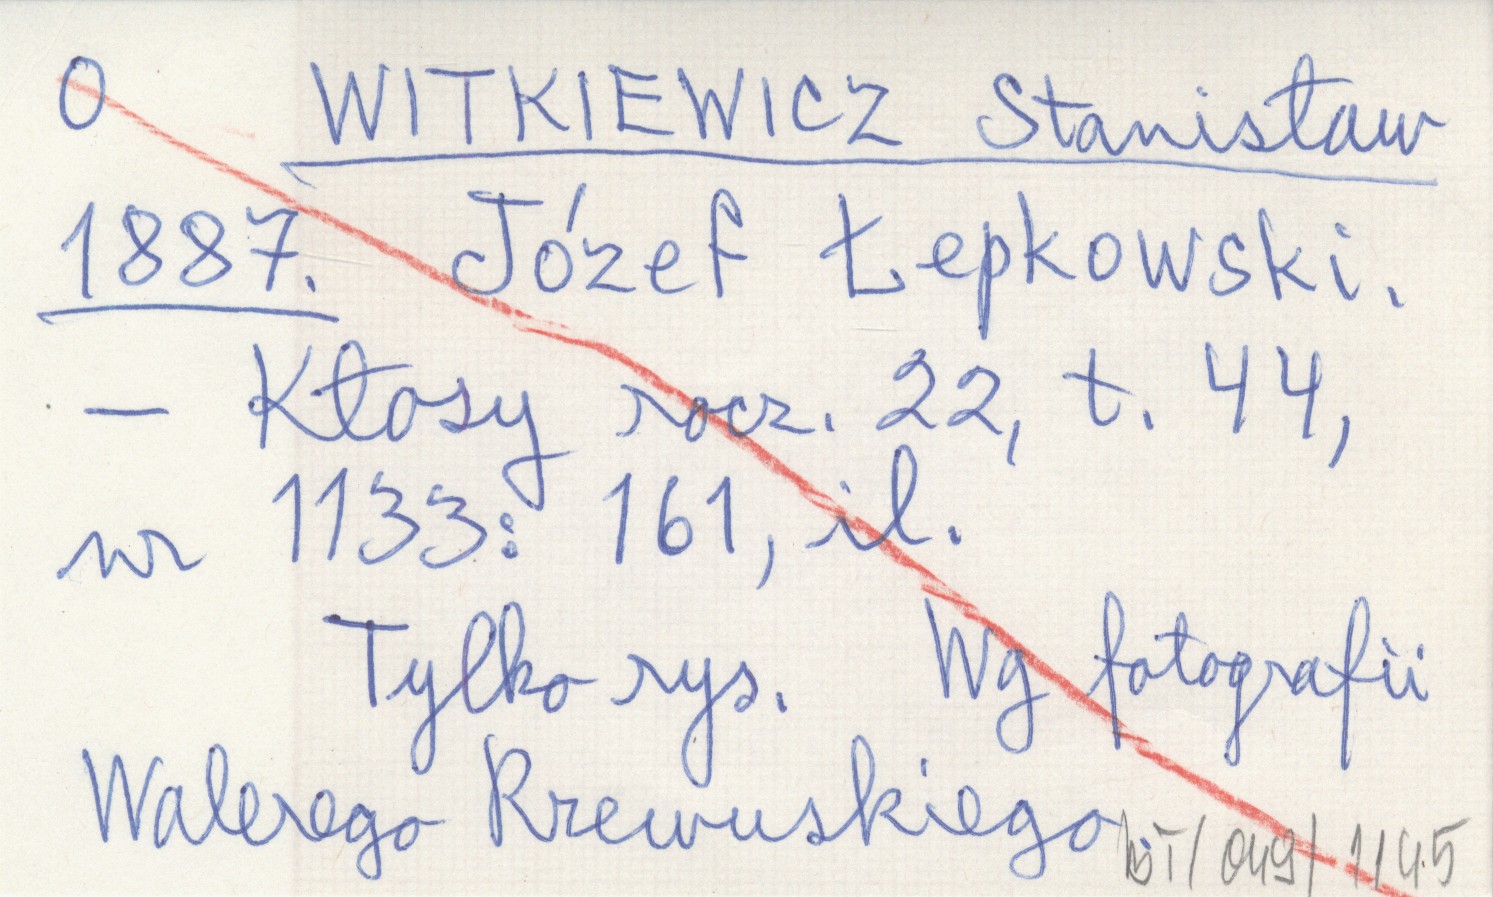 O WITKIEWICZ Stanisław
1887. Józef Łepkowski.
— Kłosy rocz. 22, t. 44,
nr 1133: 161, il.
Tylko rys. Wg fotografii
Walerego Rzewuskiego.
/049/1145